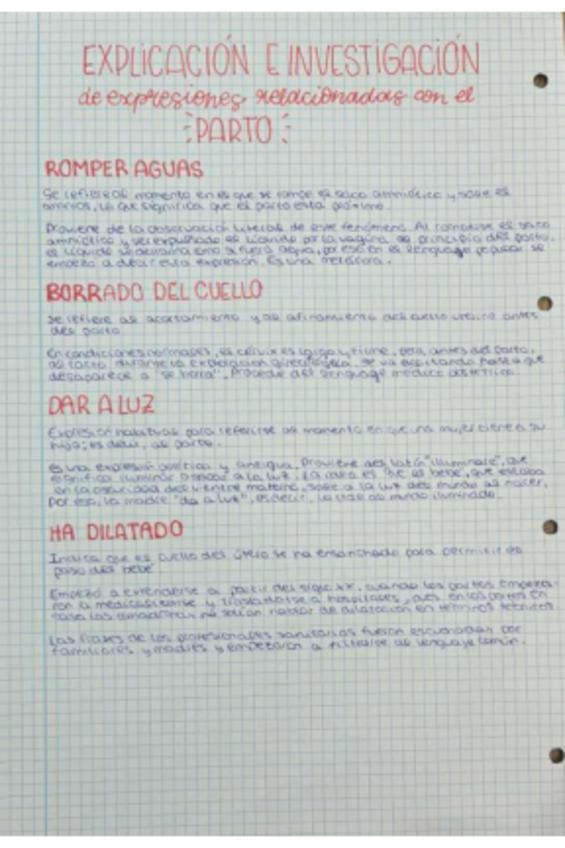 EXPLICACIÓN E INVESTIGACIÓN
de expresiones relacionadas con el
PARTO
ROMPER AGUAS
Se refiere al momento en el que se rompe el saco amniótico y sale el
amnios, lo que significa que el parto está próximo.
Proviene de la observación literal de este fenómeno. Al romperse el saco
amniótico y ser expulsado el líquido por la vagina al principio del parto,
el líquido se derrama como si fuera agua, por eso en el lenguaje popular se
empezó a usar esta expresión. Es una metáfora.
BORRADO DEL CUELLO
Se refiere al acortamiento y al afinamiento del cuello uterino antes
del parto.
En condiciones normales, el cérvix es largo y firme, pero, antes del parto,
al tacto durante la exploración ginecológica, se va acortando hasta que
desaparece o "se borra". Procede del lenguaje médico obstétrico.
DAR A LUZ
Expresión para referirse al momento en que una mujer tiene a su
hijo; es decir, al parto.
Es una expresión poética y antigua. Proviene del latín que
significa iluminar o sacar a la luz. La idea es que el bebé, que estaba
en la oscuridad del vientre materno, sale a la luz del mundo al nacer,
por eso, la madre "da a luz", es decir, lo trae al mundo iluminado.
HA DILATADO
Indica que el cuello del útero se ha ensanchado para permitir el
paso del bebé
Empezó a extenderse a partir del siglo XX, cuando los partos empeza-
ron a medicalizarse y trasladarse a hospitales, en los partos en
casa las comadronas no solían hablar de dilatación en términos técnicos.
Las frases de los profesionales sanitarios fueron escuchadas por
familiares y madres y empezaron a filtrarse al lenguaje común.